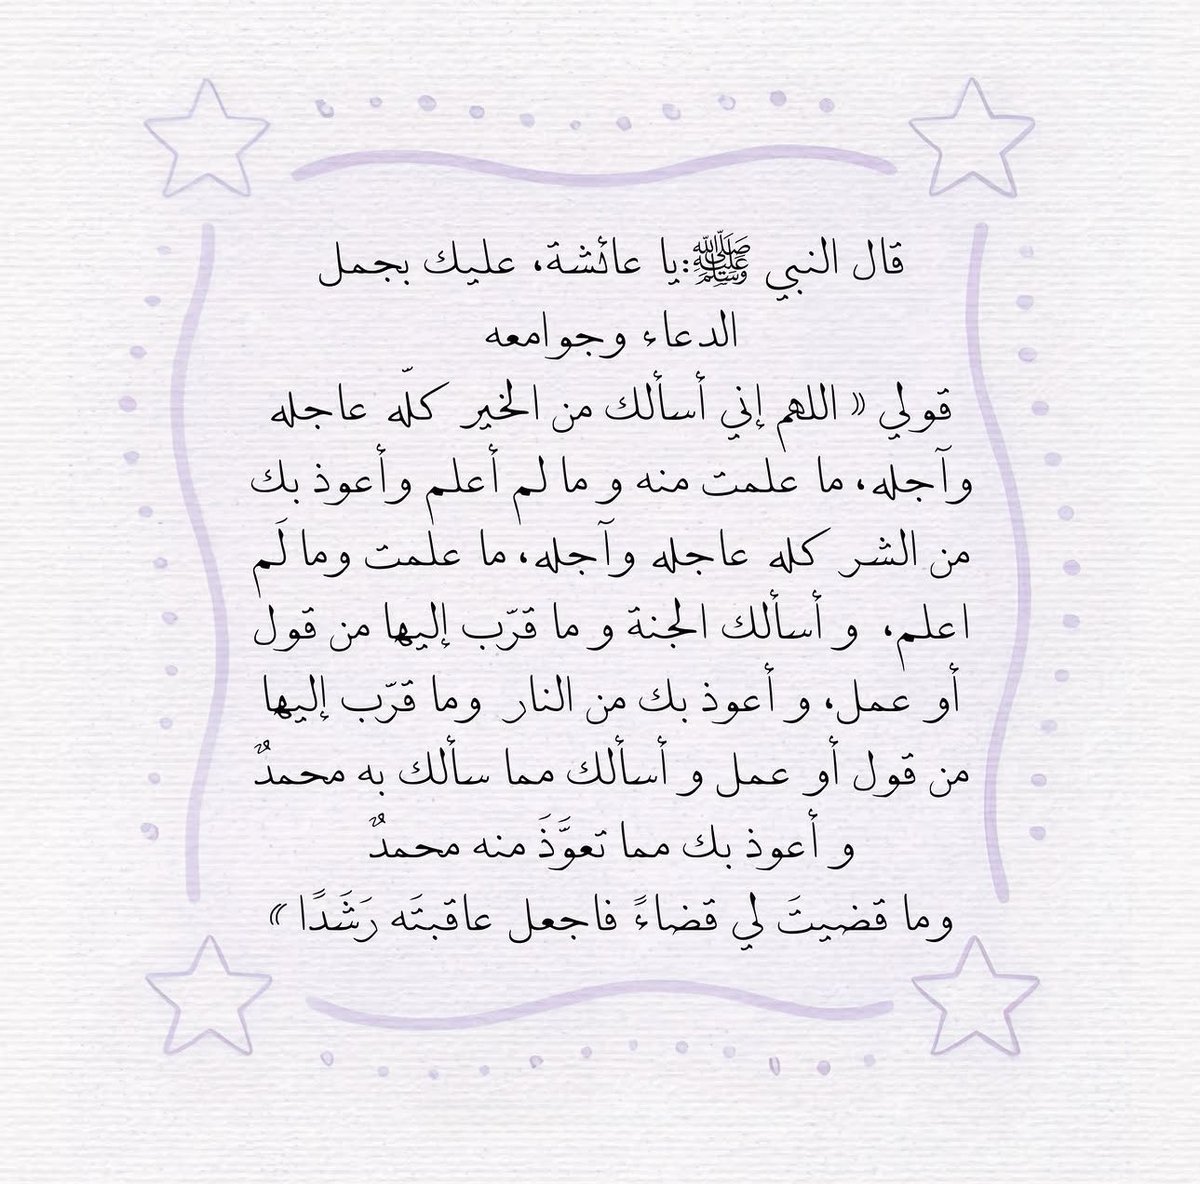 قال النبي ﷺ:يا عائشة، عليك بجمل
الدعاء وجوامعه
قولي « اللهم إني أسألك من الخير كلّه عاجله
وآجله، ما علمت منه و ما لم أعلم وأعوذ بك
من الشر كله عاجله وآجله، ما علمت وما لَم
اعلم، و أسألك الجنة و ما قرّب إليها من قول
أو عمل، و أعوذ بك من النار وما قرّب إليها
من قول أو عمل و أسألك مما سألك به محمدٌ
و أعوذ بك مما تعوَّذَ منه محمدٌ
وما قضيتَ لي قضاءً فاجعل عاقبتَه رَشَدًا »